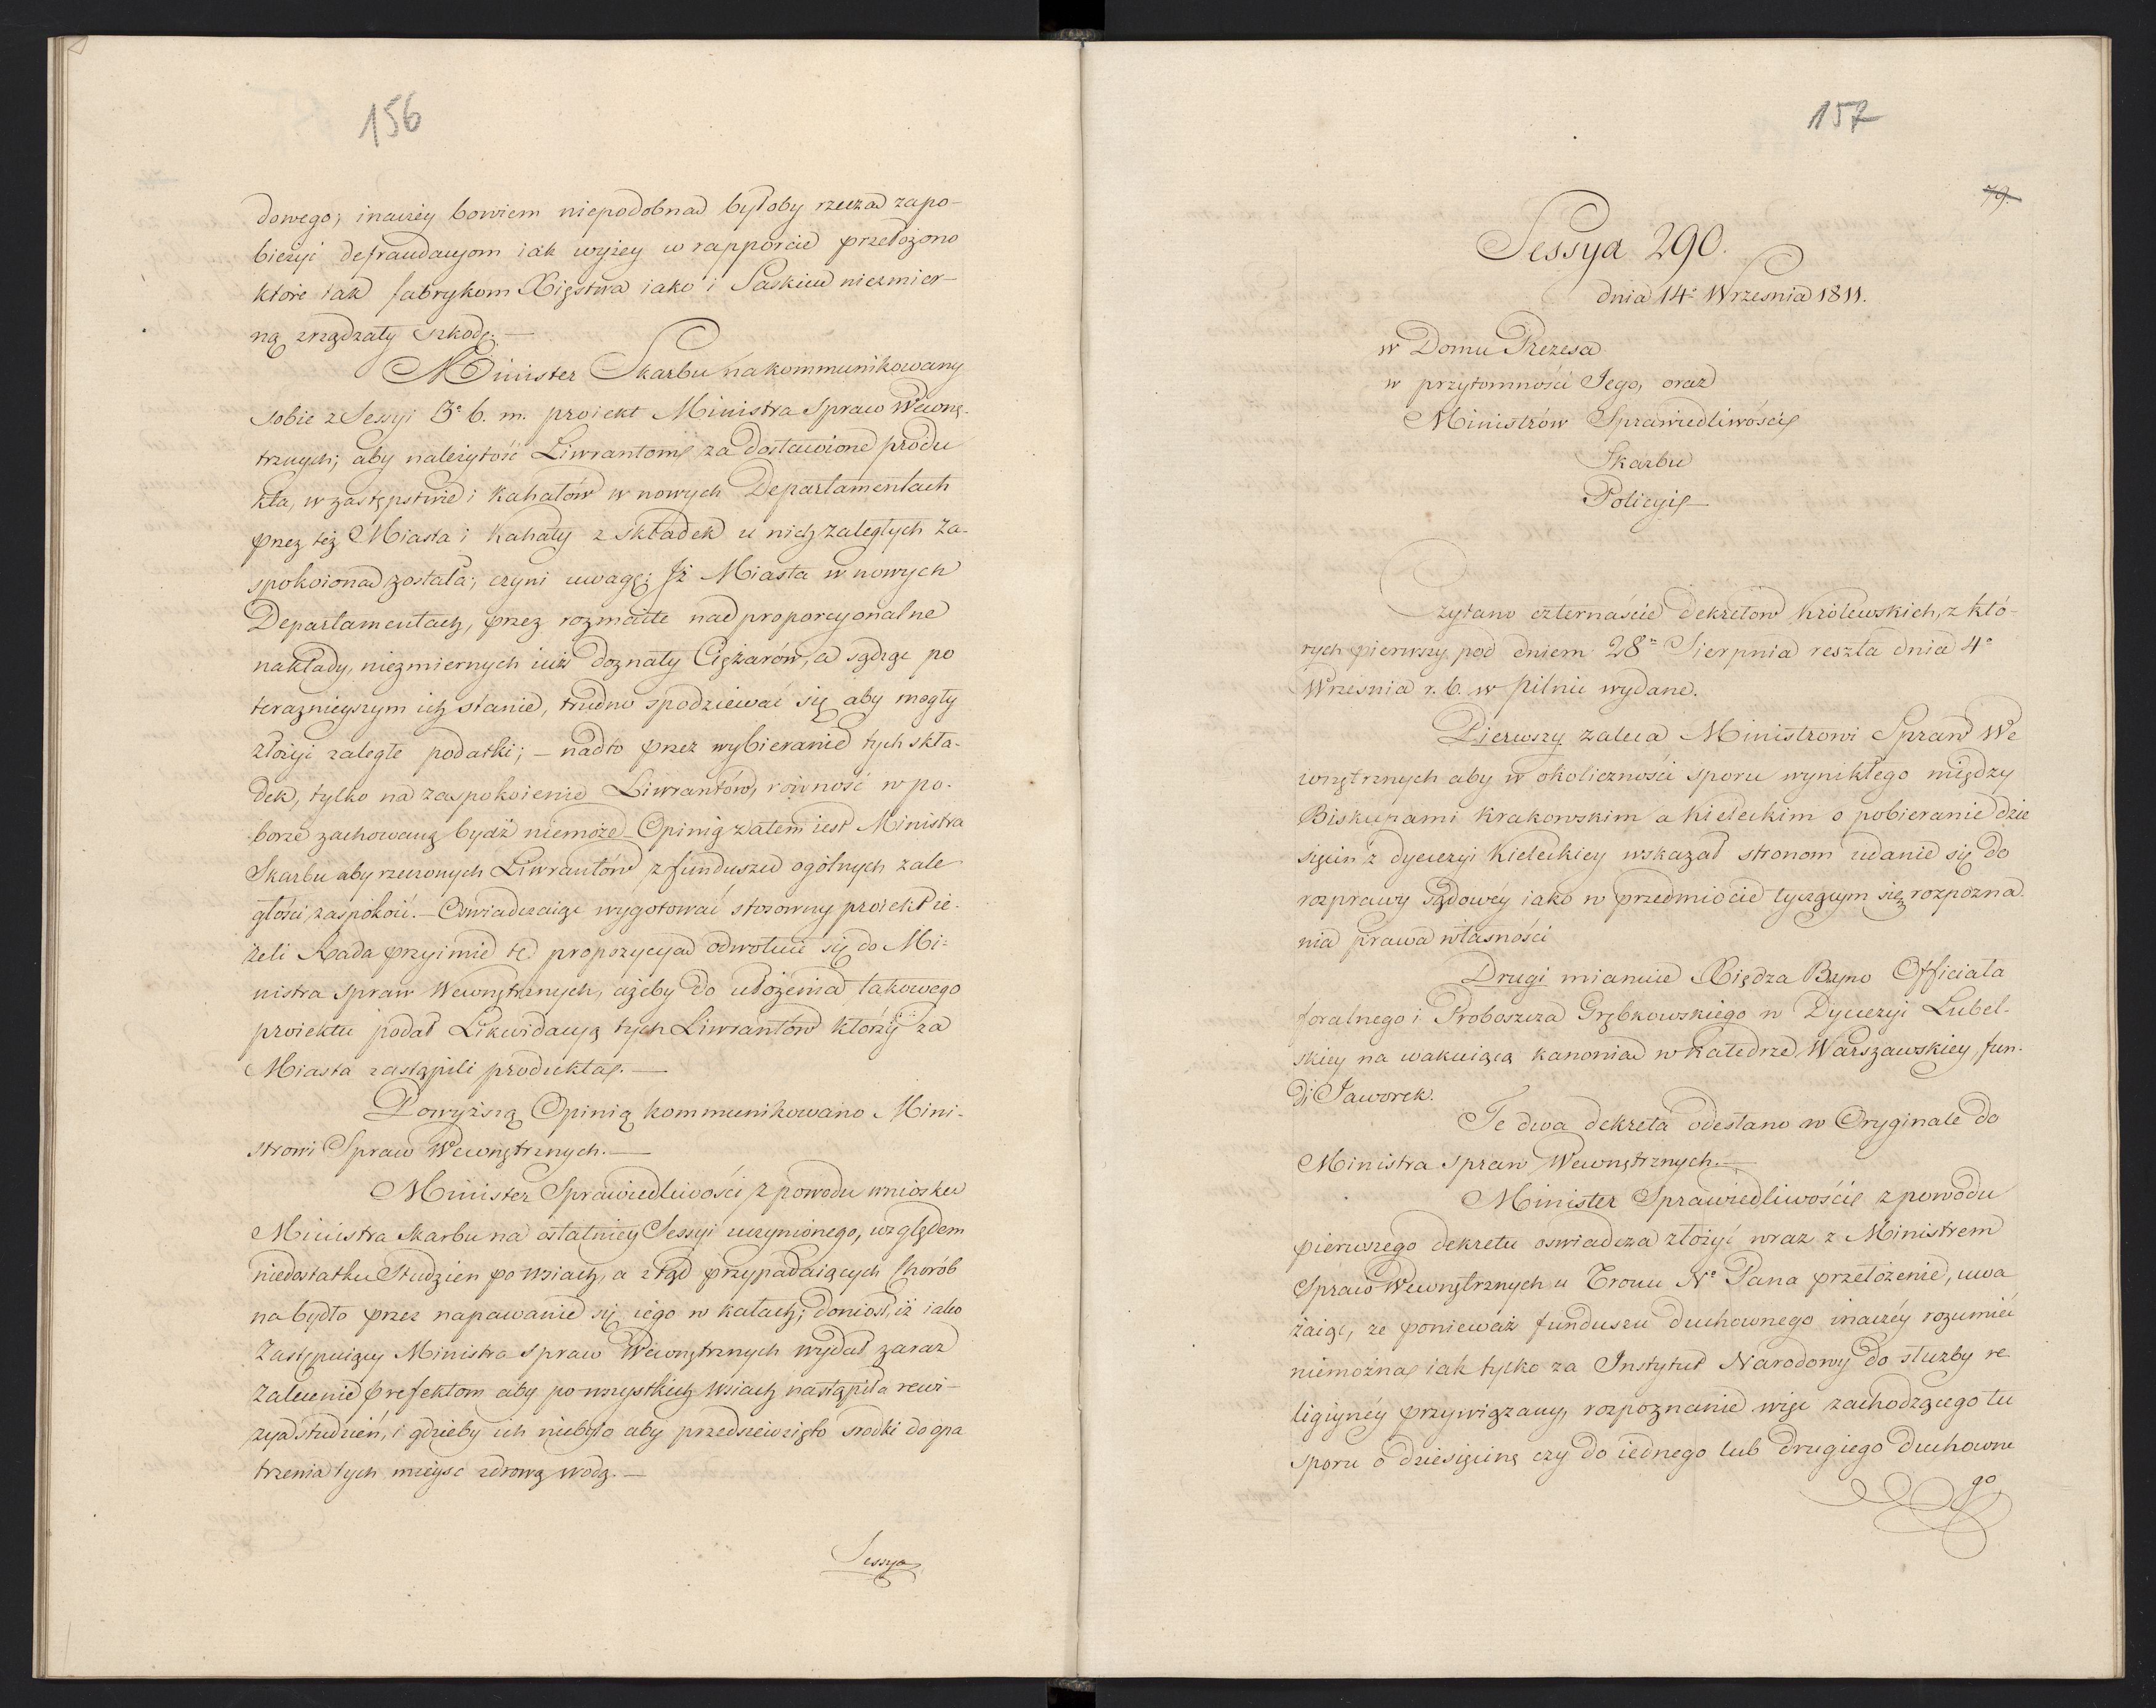 156
dowego, inaczéy bowiem niepodobna byłoby rzecza zapo-
bieżyć defraudacyom iak wyżey w rapporcie przełożono
które tak fabrykom Xięstwa iako i Saskim niezmier-
ną zrządzały szkodę.—
Minister Skarbu nakommunikowany
sobie z Sessyi 3º b. m. proiekt Ministra Spraw Wewnę-
trznych; aby należytość Liwrantom za dostawione produ
kta, w zastępstwie i Kahałów w nowych Departamentach
przez też Miasta i Kahały z składek u nich zaległych za-
spokoiona została; czyni uwagę; Iż Miasta w nowych
Departamentach, przez rozmaite nadproporcyonalne
nakłady, niezmiernych iuż doznały Ciężarów, a sądząc po
teraznieyszym ich stanie, trudno spodziewać się aby mogły
złożyć zaległe podatki; — nadto przez wybieranie tych skła-
dek, tylko na zaspokoienie Liwrantów, równość w po-
borze zachowaną bydź niemoże— Opinią zatem iest Ministra
Skarbu aby rzeczonych Liwrantów z funduszu ogólnych zale
głości zaspokoić.— Oswiadczaiąc wygotować stosowny proiekt ie-
żeli Rada przyimie tę propozycyą odwołuie się do Mi-
nistra Spraw Wewnętrznych, ażeby do ułożenia takowego
proiektu podał Likwidacyą tych Liwrantów którzy za
Miasta zastąpili produkta.—
Powyższą Opinią kommunikowano Mini-
strowi Spraw Wewnętrznych.—
Minister Sprawiedliwości z powodu wniosku
Ministra Skarbu na ostatniey Sessyi uczynionego, względem
niedostatku Studzien po wsiach, a ztąd przypadaiących Chorób
na bydło przez napawanie się iego w kałach; doniósł, iż iako
Zastępuiący Ministra Spraw Wewnętrznych wydał zaraz
Zalecenie prefektom aby po wszystkich wsiach nastąpiła rewi-
zya studzień, i gdzieby ich niebyło aby przedsiewzięto srodki do opa
trzenia tych mieysc zdrową wodą.—
Sessya
157
79.
Sessya 290.
dnia 14º Września 1811.
w Domu Prezesa
w przytomności Jego, oraz
Ministrów Sprawiedliwości
Skarbu
Policyi
Czytano czternaście dekretów królewskich, z któ-
rych pierwszy pod dniem 28º Sierpnia reszta dnia 4º
Września r. b. w Pilnic wydane.
Pierwszy zaleca Ministrowi Spraw We
wnętrznych aby w okoliczności sporu wynikłego między
Biskupami Krakowskim a Kieleckim o pobieranie dzie
sięcin z dyecezyi Kieleckiey wskazał stronom udanie się do
rozprawy sądowéy iako w przedmiocie tyczącym się rozpozna
nia prawa własności
Drugi mianuie Xiędza Bayno Officiała
foralnego i Proboszcza Grębkowskiego w Dyecezyi Lubel-
skiey na wakuiącą kanonią w Katedrze Warszawskiey, fun-
di Jaworek.
Te dwa dekreta odesłano w Oryginale do
Ministra Spraw Wewnętrznych.—
Minister Sprawiedliwości z powodu
pierwszego dekretu oswiadcza złożyć wraz z Ministrem
Spraw Wewnętrznych u Tronu Nº Pana przełożenie, uwa
żaiąc, ze ponieważ funduszu duchownego inaczéy rozumieć
niemożna iak tylko za Instytut Narodowy do służby re
ligiynéy przywiązany, rozpoznanie więc zachodzącego tu
sporu o dziesięcinę czy do iednego lub drugiego duchowne
go